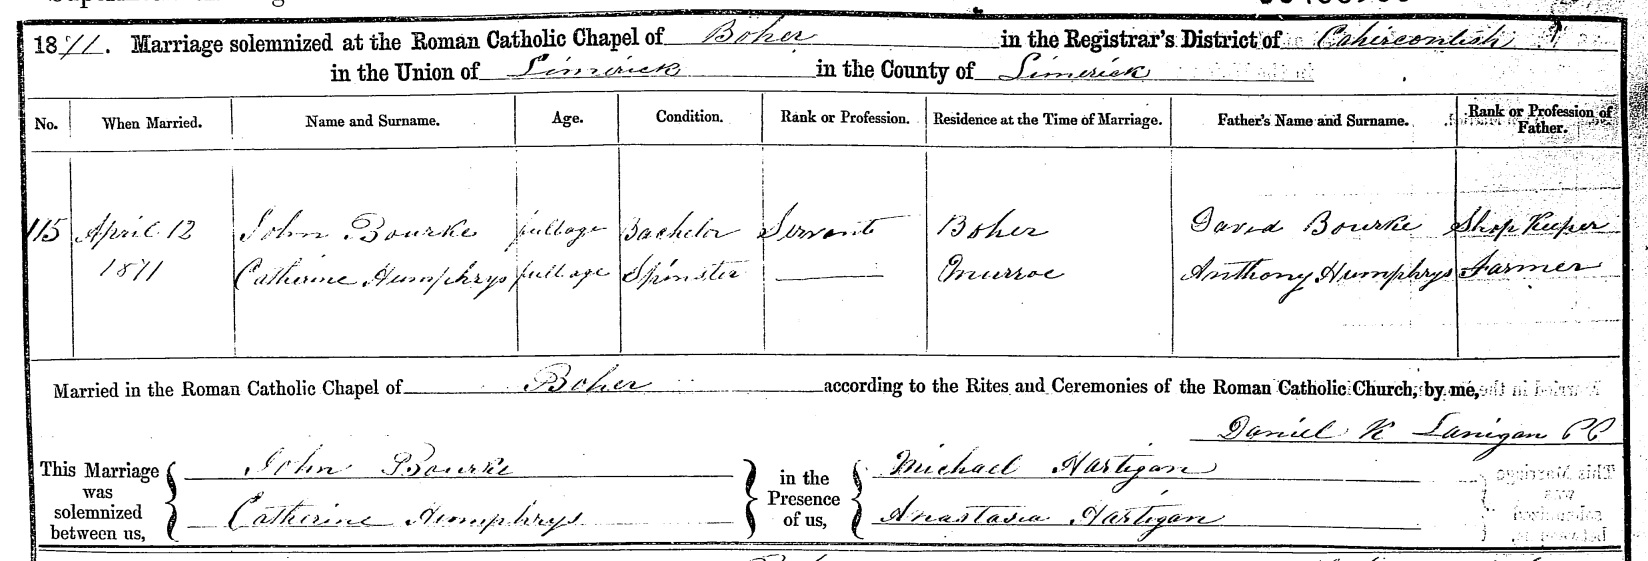 1871. Marriage solemnized at the Roman Catholic Chapel of Boher in the Registrar's District of Cahirconlish
in the Union of Limerick in the County of Limerick
No. When Married. Name and Surname. Age. Condition. Rank or Profession. Residence at the Time of Marriage. Father's Name and Surname. Rank or Profession of Father.
115 April 12 John Bourke full age Bachelor Servant Boher David Bourke Shop Keeper
1871 Catherine Humphrys full age Spinster Murroe Anthony Humphrys Farmer
Married in the Roman Catholic Chapel of Boher according to the Rites and Ceremonies of the Roman Catholic Church, by me,
Daniel K Lanigan CC
This Marriage was solemnized between us, John Bourke in the Presence of us, Michael Hartigan
Catherine Humphrys Anastasia Hartigan